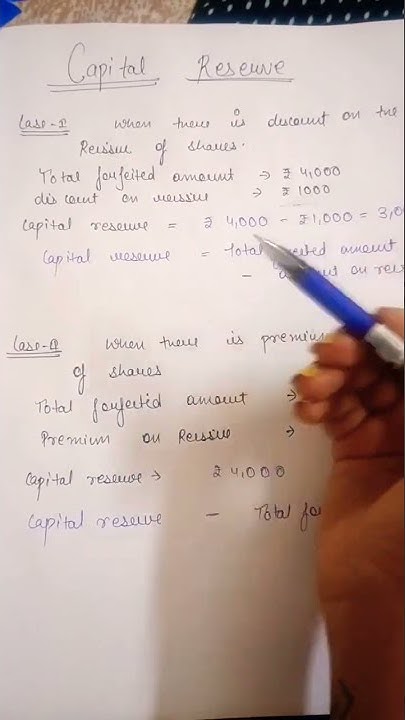 Capital Reserve
Case-I When there is discount on the
Reissue of shares.
Total forfeited amount → ₹ 4,000
discount on reissue → ₹ 1000
Capital reserve = ₹ 4,000 - ₹1,000 = 3,0
Capital reserve = Total amount
- on
Case-II When there is premium
of shares
Total forfeited amount →
Premium on Reissue →
Capital reserve → ₹ 4,000
Capital reserve - Total